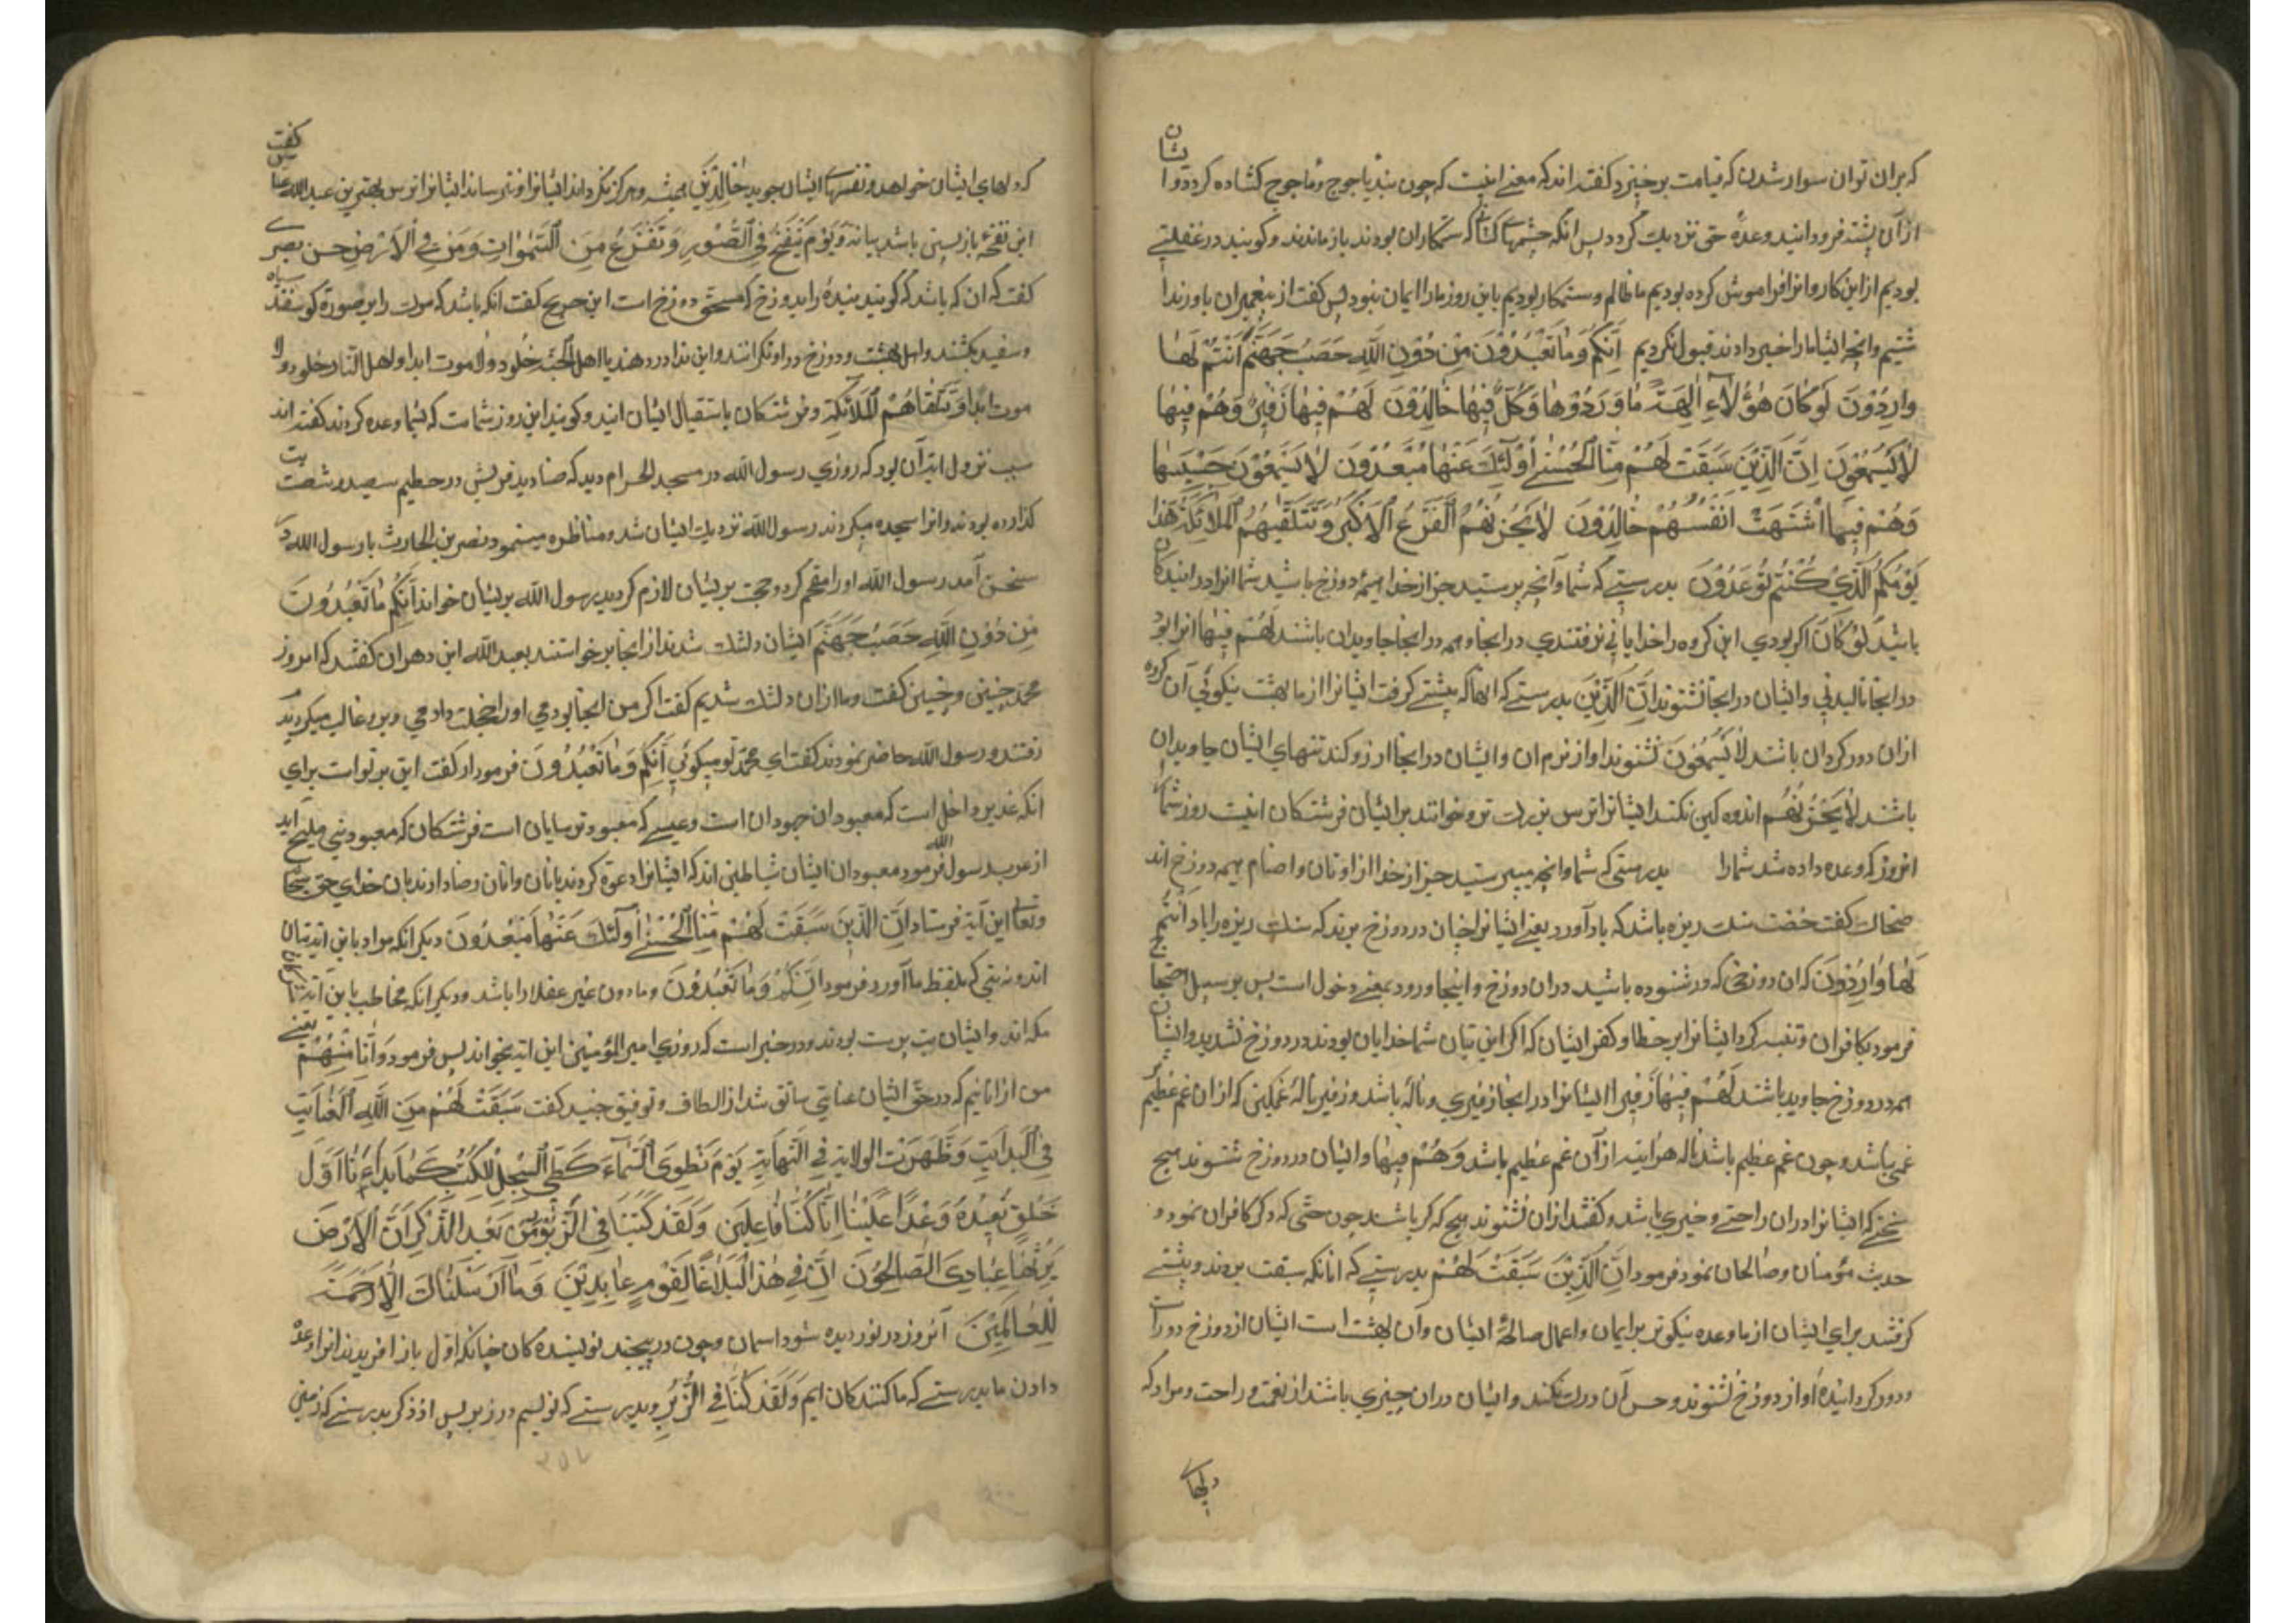 که بران توان سوار شدن که قیامت برخیزد کفته اند که معنی اینست که چون بند یاجوج و ماجوج کشاده کردد و ایشان
از آن پشته فرود آیند وعدهٔ حق نزدیک کردد پس آنکه چشمهای کسانی که ستمکاران بودند باز ماندند و کویند در غفلتی
بودیم از این کار و انرا فراموش کرده بودیم ما ظالم و ستمکار بودیم باین روز ما را ایمان نبود پس کفت از پیغمبران باور ندا
شتیم و آنچه ایشان ما را خبر دادند قبول نکردیم اِنَّکُمْ وَمَا تَعْبُدُوْنَ مِنْ دُوْنِ اللّٰهِ حَصَبُ جَهَنَّمَ اَنْتُمْ لَهَا
وَارِدُوْنَ لَوْ کَانَ هٰؤُلَآءِ اٰلِهَةً مَا وَرَدُوْهَا وَکُلٌّ فِیْهَا خَالِدُوْنَ لَهُمْ فِیْهَا زَفِیْرٌ وَهُمْ فِیْهَا
لَا یَسْمَعُوْنَ اِنَّ الَّذِیْنَ سَبَقَتْ لَهُمْ مِنَّا الْحُسْنٰی اُوْلٰٓئِکَ عَنْهَا مُبْعَدُوْنَ لَا یَسْمَعُوْنَ حَسِیْسَهَا
وَهُمْ فِیْمَا اشْتَهَتْ اَنْفُسُهُمْ خَالِدُوْنَ لَا یَحْزُنُهُمُ الْفَزَعُ الْاَکْبَرُ وَتَتَلَقّٰیهُمُ الْمَلَائِکَةُ هٰذَا
یَوْمُکُمُ الَّذِیْ کُنْتُمْ تُوْعَدُوْنَ بدرستی که شما و آنچه پرستید جز از خدا هیمهٔ دوزخ باشید شما انرا در آیندکان
باشید لَوْ کَانَ اکر بودی این کروه را خدایانی نرفتندی در آنجا و همه در آنجا جاویدان باشند لَهُمْ فِیْهَا انرا بود
در آنجا نالیدنی و ایشان در آنجا نشنوند اِنَّ الَّذِیْنَ بدرستی که انها که پیشی کرفت ایشانرا از ما بهشت نیکوئی آن کروه
ازان دور کردان باشند لَا یَسْمَعُوْنَ نشنوند اواز نرم ان و ایشان در آنجا ارزو کند تنهای ایشان جاویدان
باشند لَا یَحْزُنُهُمُ اندوه کین نکند ایشانرا ترس بزرکتر و خوانند بر ایشان فرشتکان اینست روز شما
انروز که وعده داده شد شما را بدرستی که شما و آنچه میپرستید جز از خدا از اوثان و اصنام هیمه دوزخ اند
ضحاک کفت حَصَب سنک ریزه باشد که باد آورد یعنی ایشانرا چنان در دوزخ برند که سنک ریزه را باد اَنْتُمْ
لَهَا وَارِدُوْنَ که ان دوزخی که در شنوده باشید در ان دوزخ و اینجا ورود بمعنی دخول است پس بر سبیل احتجاج
فرمود بکافران و تنبیه کرد ایشانرا بر خطا و کفر ایشان که اکر این بتان شما خدایان بودند در دوزخ نشدید و ایشان
همه در دوزخ جاوید باشند لَهُمْ فِیْهَا زَفِیْر ایشانرا در آنجا زفیری و نالهٔ باشد و زفیر نالهٔ غمکینی که از ان غم عظیم
غمی باشد و چون غم عظیم باشد ناله هر اینه از آن غم عظیم باشد وَهُمْ فِیْهَا و ایشان در دوزخ شنوند هیچ
سخنی که ایشانرا دران راحتی و خیری باشد و کفتند ازان نشنوند هیچ که کر باشند چون حق که ذکر کافران نمود و
حدیث مؤمنان و صالحان نمود فرمود اِنَّ الَّذِیْنَ سَبَقَتْ لَهُمْ بدرستی که انانکه سبقت بردند و پیشی
کرفتند برای ایشان از ما وعده نیکوتر بر ایمان و اعمال صالحهٔ ایشان و آن بهشت است ایشان از دوزخ دور است
و دور کردانیده اواز دوزخ نشنوند و حس آن درک نکند و ایشان دران چیزی باشند از نعمت و راحت و مراد که
دلهای
که دلهای ایشان خواهد و نفسهای ایشان جوید خَالِدِیْنَ همیشه و هرکز نکرداند ایشانرا و نترساند ایشانرا ترس مهترین عبد الله عباس کفت
این نفخهٔ بازپسین باشد بیانه وَیَوْمَ یُنْفَخُ فِی الصُّوْرِ وَنَفَزَعُ مِنَ السَّمٰوَاتِ وَمَنْ فِی الْاَرْضِ حسن بصری
کفت که ان که باشد که کویند بندهٔ را بدوزخ که مستحق دوزخ است ابن جریج کفت انکه باشد که موت را بر صورة کوسفند سیاه
و سفید بکشند و اهل بهشت و دوزخ در او نکرانند و این ندا در دهند یا اهل الجنة خلود ولا موت ابدا و اهل النار خلود ولا
موت ابدا وَتَتَلَقَّاهُمُ الْمَلَائِکَةُ و فرشتکان باستقبال ایشان ایند و کویند این روز شماست که بشما وعده کردند کفته اند
سبب نزول ایة آن بود که روزی رسول الله در مسجد الحرام دید که صنادید قریش در حطیم سیصد و شصت بت
کذارده بودند و انرا سجده میکردند رسول الله نزدیک ایشان شد و مناظره مینمود و نضر بن الحارث با رسول الله در
سخن آمد رسول الله او را مفحم کرد و حجت بریشان لازم کردید رسول الله بریشان خواند اَنَّکُمْ مَا تَعْبُدُوْنَ
مِنْ دُوْنِ اللّٰهِ حَصَبُ جَهَنَّمَ ایشان دلتنک شدند از آنجا برخواستند بعبد الله ابن دهران کفتند که امروز
محمد چنین و چنین کفت و ما ازان دلتنک شدیم کفت اکر من آنجا بودمی اورا خجلت دادمی و برو غالب میکردند
رفتند و رسول الله حاضر نمودند کفت ای محمد تو میکوئی اَنَّکُمْ وَمَا تَعْبُدُوْنَ فرمود ار کفت این بر تو است برای
انکه عزیر داخل است که معبودان جهودان است و عیسی که معبود ترسایان است فرشتکان که معبود بنی ملیح اند
از عرب رسول الله فرمود معبودان ایشان شیاطین اند که ایشانرا دعوة کردند بانان وانان رضا دادند بان خدای حق سبحانه
وتعالی این آیة فرستاد اِنَّ الَّذِیْنَ سَبَقَتْ لَهُمْ مِنَّا الْحُسْنٰی اُوْلٰٓئِکَ عَنْهَا مُبْعَدُوْنَ دیکر انکه مراد باین ایة بتان
اند و نه بینی که بلفظ ما آورد فرمود اِنَّکُمْ وَمَا تَعْبُدُوْنَ و ما دون غیر عقلا را باشد و دیکر انکه مخاطب باین آیة مشرکان
مکه اند و ایشان بت پرست بودند و در خبر است که روزی امیر المؤمنین این ایة بخواند پس فرمود وَاَنَا مِنْهُمْ یعنی
من از انانیم که در حق ایشان عنایتی سابق شد از الطاف و توفیق جنید کفت سَبَقَتْ لَهُمْ مِنَ اللّٰهِ الْعِنَایَةُ
فِی الْبِدَایَةِ وَظَهَرَتْ الولایة فِی النِّهَایَةِ یَوْمَ نَطْوِی السَّمَآءَ کَطَیِّ السِّجِلِّ لِلْکُتُبِ کَمَا بَدَاْنَا اَوَّلَ
خَلْقٍ نُعِیْدُهُ وَعْدًا عَلَیْنَا اِنَّا کُنَّا فَاعِلِیْنَ وَلَقَدْ کَتَبْنَا فِی الزَّبُوْرِ مِنْ بَعْدِ الذِّکْرِ اَنَّ الْاَرْضَ
یَرِثُهَا عِبَادِیَ الصَّالِحُوْنَ اِنَّ فِیْ هٰذَا لَبَلَاغًا لِقَوْمٍ عَابِدِیْنَ وَمَا اَرْسَلْنَاکَ اِلَّا رَحْمَةً
لِلْعَالَمِیْنَ آنروز در نوردیده شود اسمان و چون درپیچند نویسنده کان چنانکه اول باز افریدند انرا وعدهٔ
دادن ما بدرستی که ما کنندکان ایم وَلَقَدْ کَتَبْنَا فِی الزُّبُرِ و بدرستی که نوشتیم در زبور پس از ذکر بدرستی که زمین